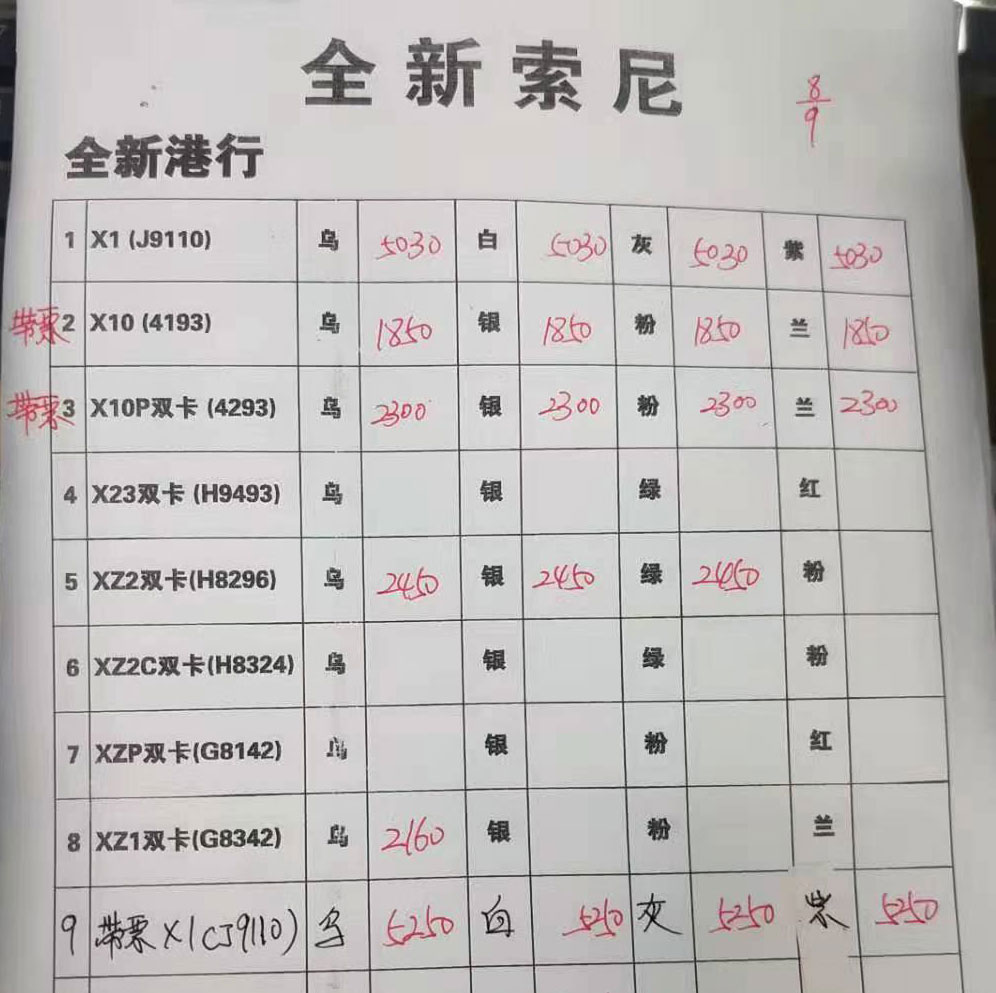 全新索尼
8/9
全新港行
1 X1 (J9110) 乌 5030 白 5030 灰 5030 紫 5030
带票 2 X10 (4193) 乌 1850 银 1850 粉 1850 兰 1850
带票 3 X10P双卡 (4293) 乌 2300 银 2300 粉 2300 兰 2300
4 X23双卡 (H9493) 乌 银 绿 红
5 XZ2双卡(H8296) 乌 2450 银 2450 绿 2450 粉
6 XZ2C双卡(H8324) 乌 银 绿 粉
7 XZP双卡(G8142) 乌 银 粉 红
8 XZ1双卡(G8342) 乌 2160 银 粉 兰
9 带票 X1(J9110) 乌 5250 白 5250 灰 5250 紫 5250